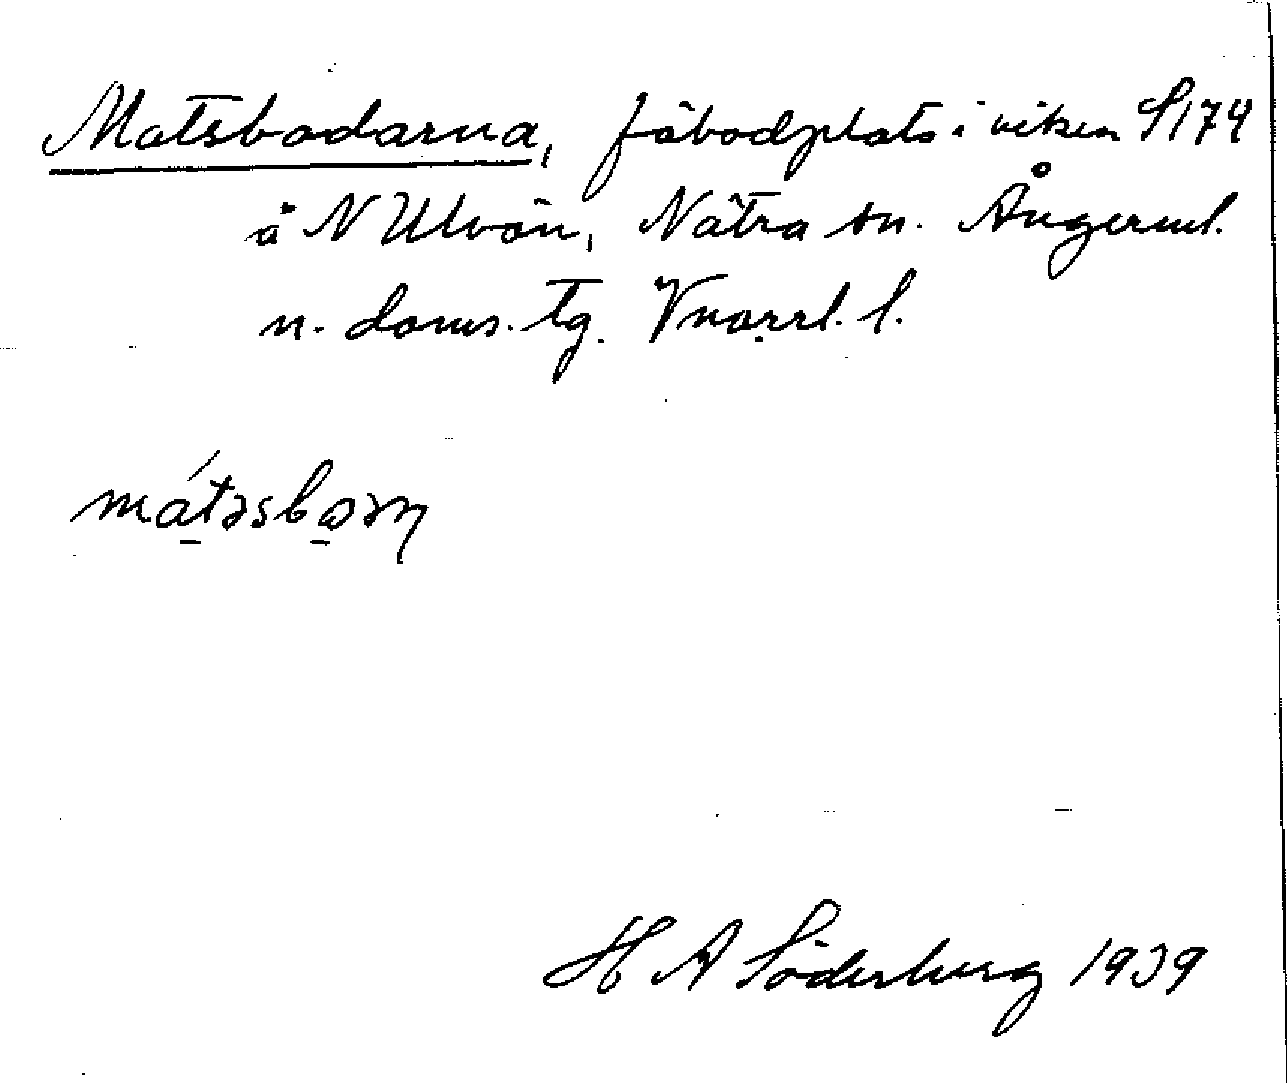 Matsbodarna, fäbodplats i viken S174
å N Ulvön, Nätra sn. Ångerml.
n. doms. tg. Vnorrl. l.
mátəsbɷəɳ
H A Söderberg 1939